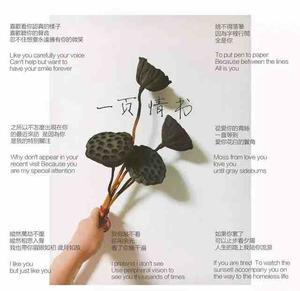 喜歡看你認真的樣子
喜歡聽你的聲音
忍不住想要永遠擁有你的微笑
Like you carefully your voice
Can't help but want to
have your smile forever
捨不得落筆
因為字裡行間
全是你
To put pen to paper
Because between the lines
All is you
一页情书
之所以不怎麼出現在你
的最近來訪 是因為你
是我的特別關注
Why don't appear in your
recent visit Because you
are my special attention
從愛你的青絲
一直等到
愛你花白的鬢角
Moss from love you
love you
until gray sideburns
縱然萬劫不復
縱然相思入骨
我也待你眉眼如初 歲月如故
I like you
but just like you
我假裝看不看
卻用余光
看了你幾千遍
I pretend I don't see
Use peripheral vision to
see you thousands of times
如果你累了
可以止步看夕陽
人生的路上我陪你流浪
If you are tired To watch the
sunset accompany you on
the way to the homeless life